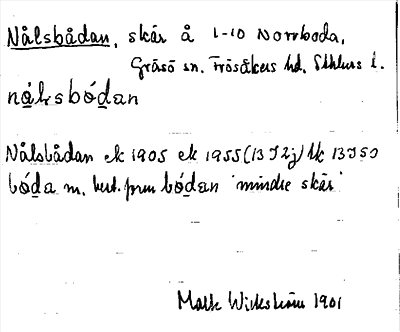 Nålsbådan, skär å 1-10 Norrboda,
Gräsö sn. Frösåkers hd. Sthlms l.
nålsbódan
Nålsbådan ek 1905 ek 1955 (13 I 2j) tk 13 I SO
bóda m. best. form bódan 'mindre skär'
Wickström 1901